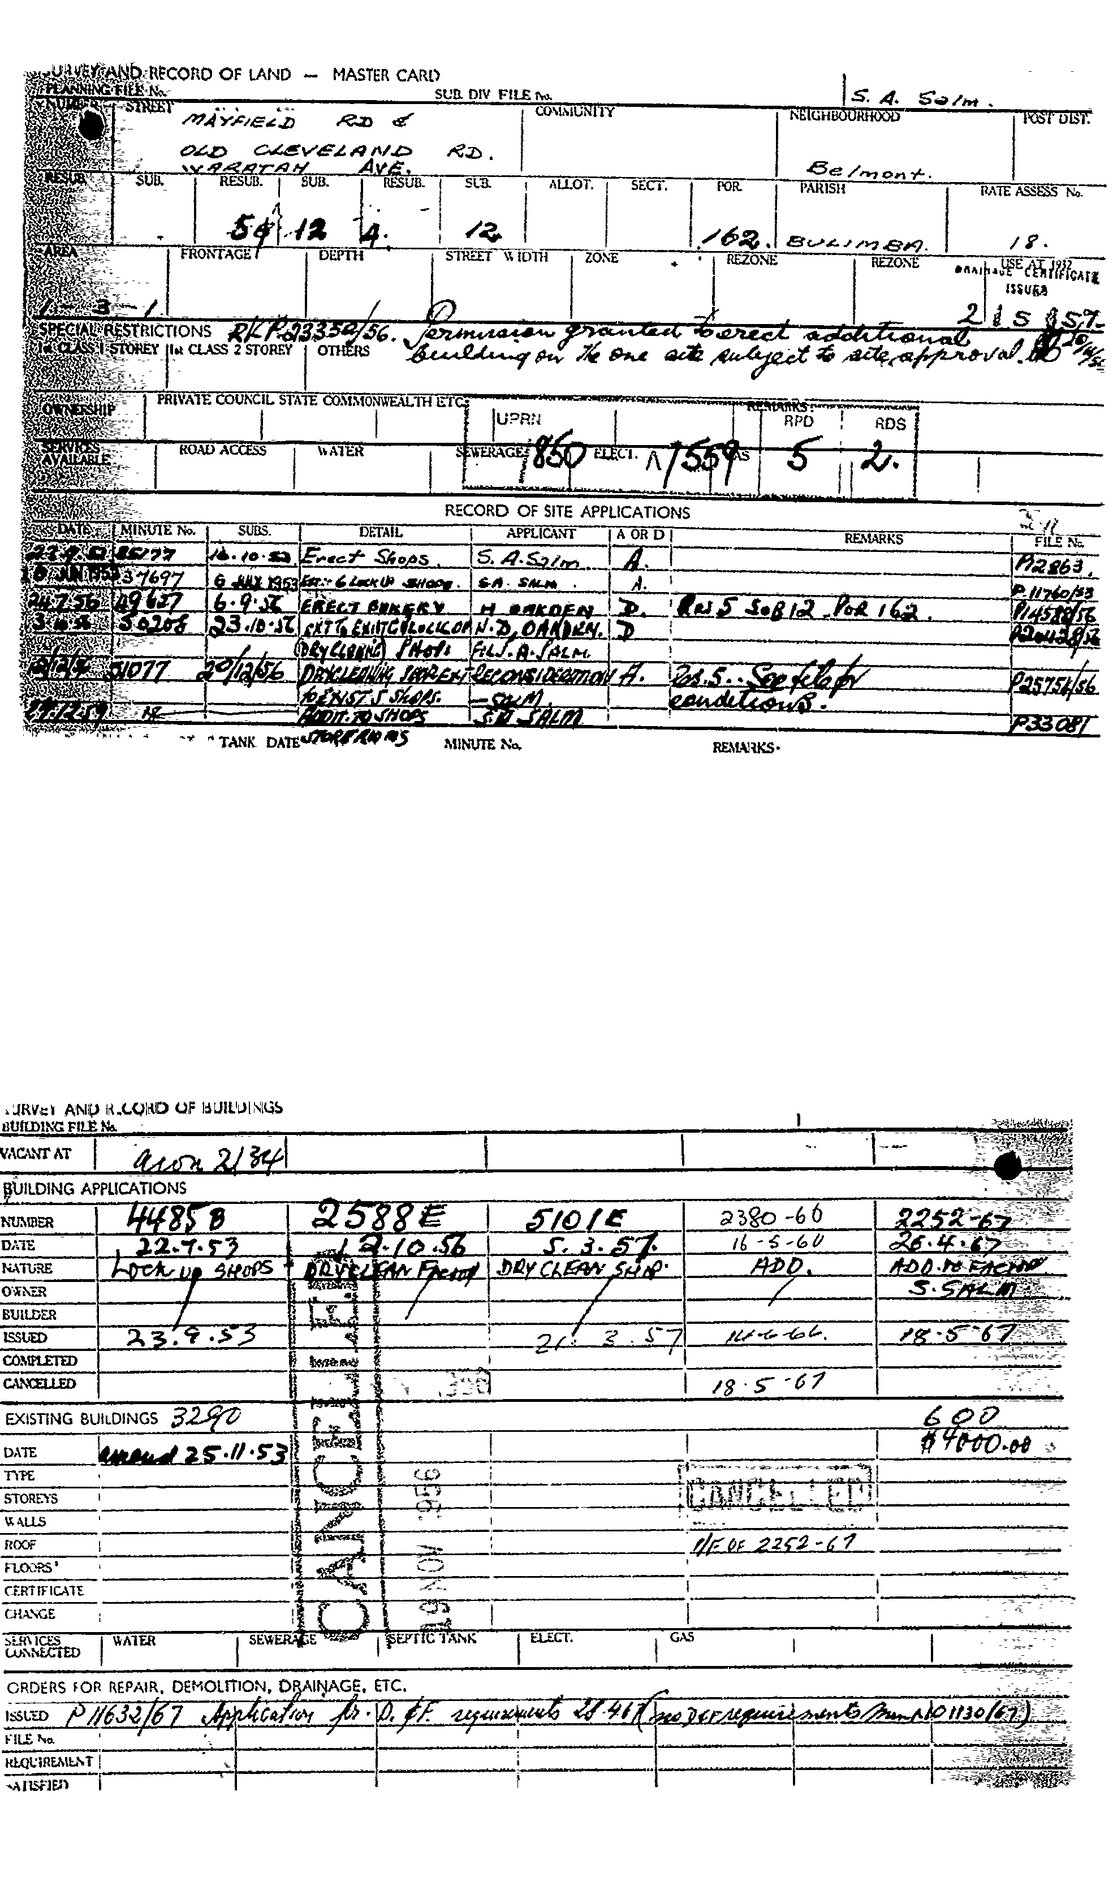 SURVEY AND RECORD OF LAND — MASTER CARD
PLANNING FILE No. SUB. DIV FILE No. S. A. Salm.
NUMBER STREET COMMUNITY NEIGHBOURHOOD POST DIST.
MAYFIELD RD &
OLD CLEVELAND RD.
WARATAH AVE. Belmont.
RESUB. SUB. RESUB. SUB. RESUB. SUB. ALLOT. SECT. POR. PARISH RATE ASSESS No.
12 4. 12 162. BULIMBA. 18.
AREA FRONTAGE DEPTH STREET WIDTH ZONE REZONE REZONE USE AT 1952
DRAINAGE CERTIFICATE
ISSUED
1 - 3 - 1 2 5 57
SPECIAL RESTRICTIONS 23350/56. Permission granted to erect additional
1st CLASS 1 STOREY 1st CLASS 2 STOREY OTHERS building on the one site subject to site approval.
OWNERSHIP PRIVATE COUNCIL STATE COMMONWEALTH ETC. REMARKS:
UPRN RPD RDS
SERVICES AVAILABLE ROAD ACCESS WATER SEWERAGE ELECT. GAS
850 1559 5 2.
RECORD OF SITE APPLICATIONS
DATE MINUTE No. SUBS. DETAIL APPLICANT A OR D REMARKS FILE No.
16.10.52 Erect Shops S.A. Salm A. P12863.
JUN 1953 37697 6 1953 6 LOCK UP SHOPS. S.A. SALM A. P.11760/53
24.7.56 49657 6.9.56 ERECT BAKERY H OAKDEN D. Res 5 SUB 12 POR 162 P14588/56
3.10.56 50208 23.10.56 EXT TO EXIST LOCK UP H.D. OAKDEN. D
(DRYCLEANING) SHOPS S.A. SALM
12/12/56 51077 20/12/56 DRYCLEANING RECONSIDERATION A. Res. 5.. See file for P25756/56
TO EXIST 5 SHOPS. — SALM conditions.
29.12.59 ADDIT. TO SHOPS S.A. SALM P33081
STOREROOMS
TANK DATE MINUTE No. REMARKS.
SURVEY AND RECORD OF BUILDINGS
BUILDING FILE No.
VACANT AT
BUILDING APPLICATIONS
NUMBER 4485B 2588E 5101E 2380-60 2252-67
DATE 22.7.53 12.10.56 5.3.57. 16-5-60 26.4.67
NATURE LOCK UP SHOPS DRYCLEAN FACTORY DRY CLEAN SHOP. ADD. ADD. TO FACTORY
OWNER S. SALM
BUILDER
ISSUED 23.9.53 21.3.57 18-5-67
COMPLETED
CANCELLED 18.5-67
EXISTING BUILDINGS 3290 600
DATE amend 25.11.53 $4000.00
TYPE
STOREYS CANCELLED
WALLS
ROOF 2252-67
FLOORS
CERTIFICATE
CHANGE
CANCELLED
19 NOV 1956
SERVICES CONNECTED WATER SEWERAGE SEPTIC TANK ELECT. GAS
ORDERS FOR REPAIR, DEMOLITION, DRAINAGE, ETC.
ISSUED P11632/67 Application for D. & F. requirements 28.4.67 (no D&F requirements
FILE No.
REQUIREMENT
SATISFIED